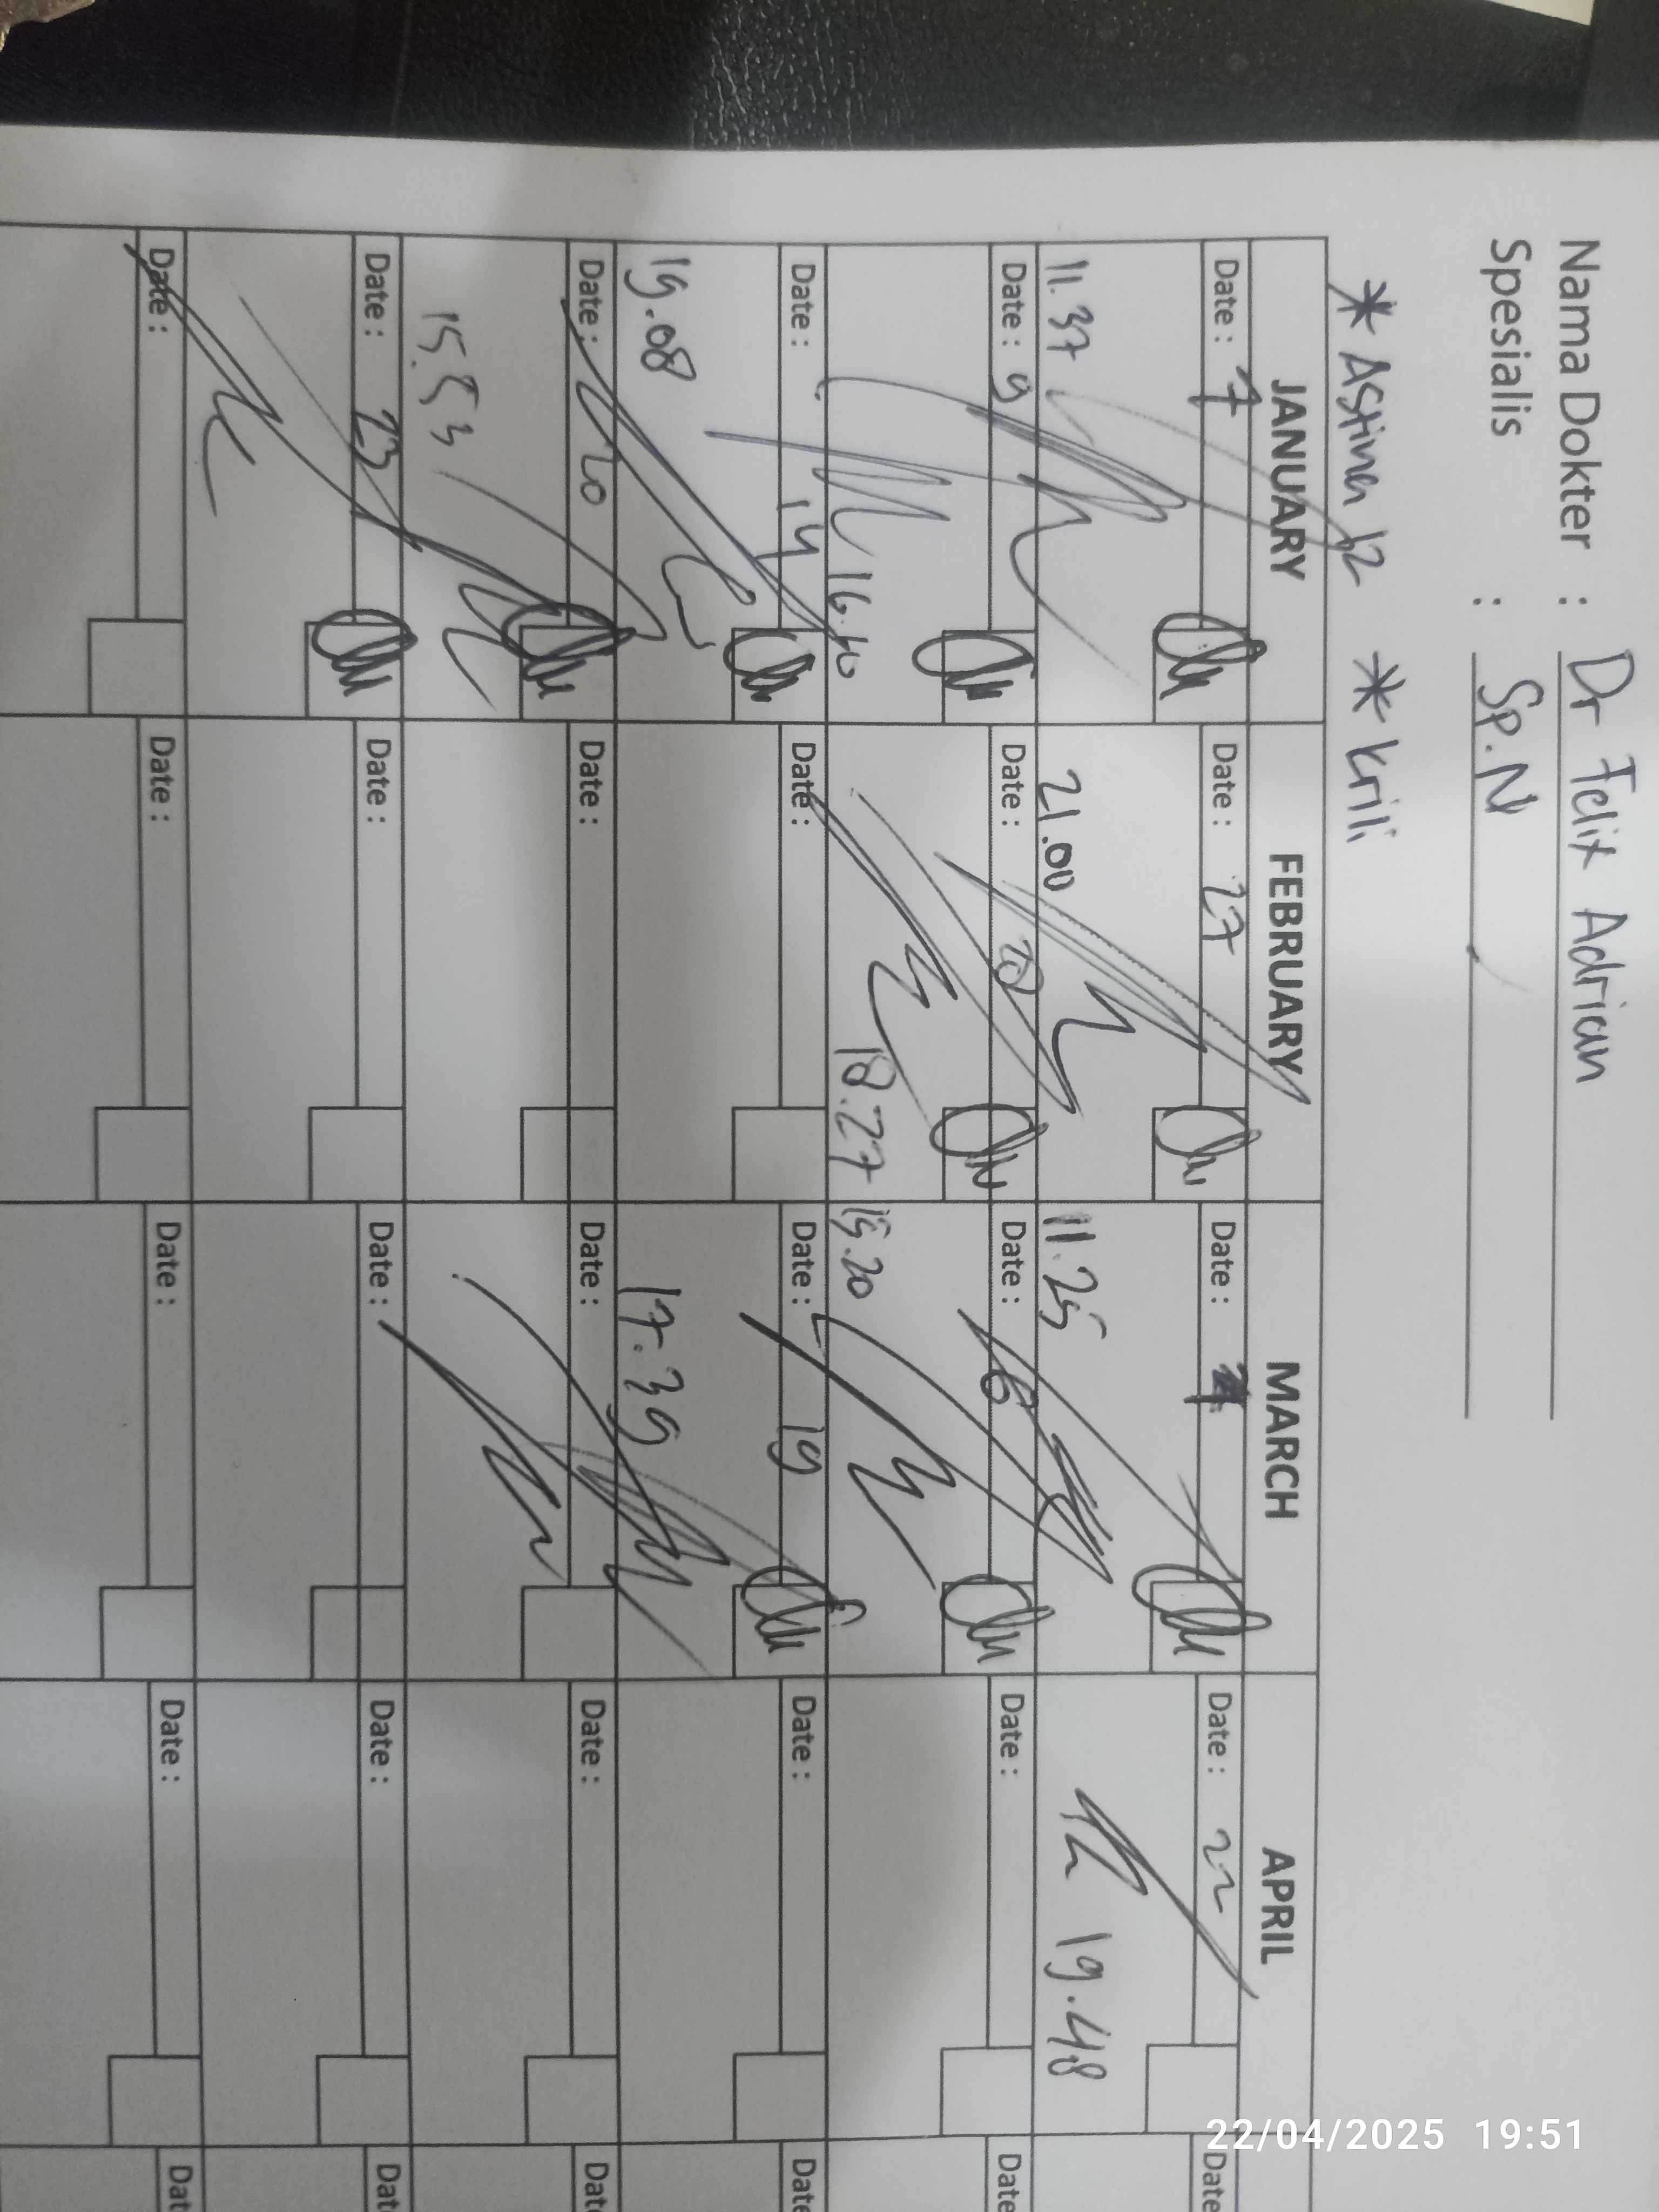 Nama Dokter : Dr Felix Adrian
Spesialis : Sp.N
* Astina 12 * Krili
JANUARY FEBRUARY MARCH APRIL
Date : 7 Date : 27 Date : Date : 22 Date
11.37 21.00 11.25 19.48
Date : 9 Date : 28 Date : 6 Date : Date
16.10 18.27 15.20
Date : 14 Date : Date : 19 Date : Date
19.08 17.39
Date : 20 Date : Date : Date : Date
15.53
Date : 23 Date : Date : Date : Date
Date : Date : Date : Date : Date
22/04/2025 19:51